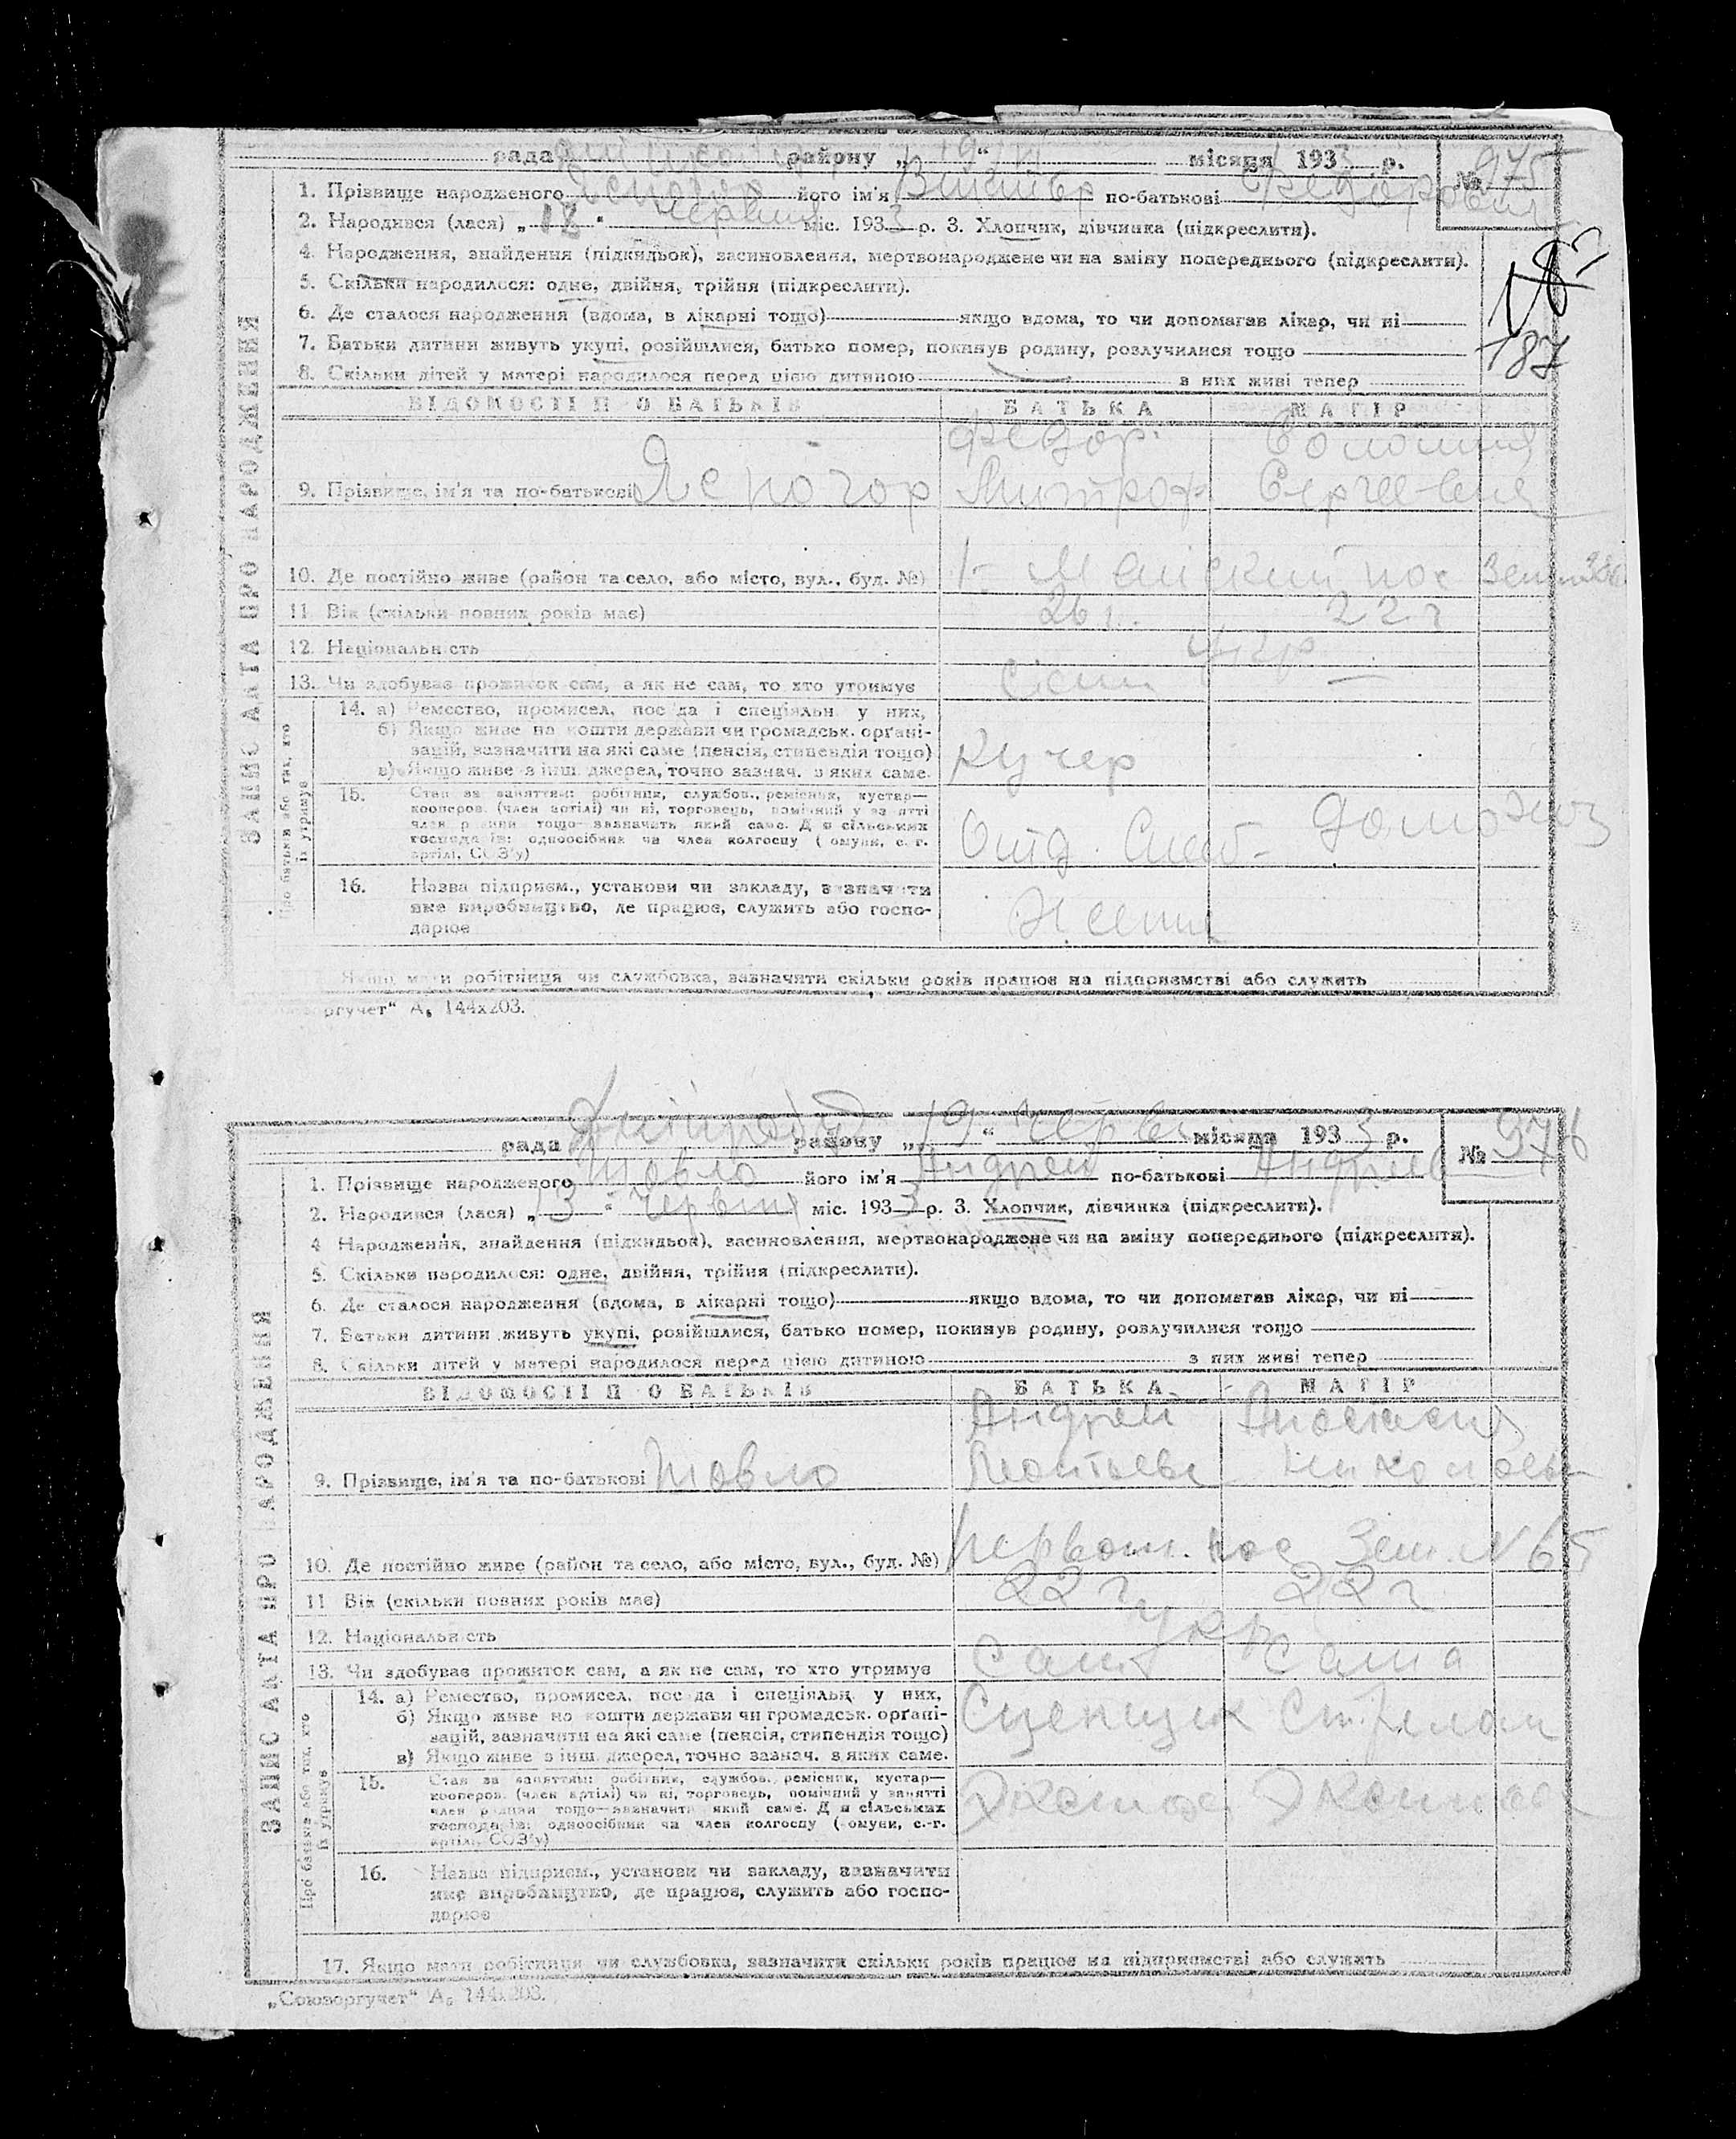 рада району „19“ місяця 1933 р. № 975
1. Прізвище народженого його ім'я Виктор по-батькові Федорович
2. Народився (лася) „12“ Червня міс. 1933 р. 3. Хлопчик, дівчинка (підкреслити).
4. Народження, знайдення (підкидьок), засиновлення, мертвонароджене чи на зміну попереднього (підкреслити).
5. Скільки народилося: одне, двійня, трійня (підкреслити).
6. Де сталося народження (вдома, в лікарні тощо) якщо вдома, то чи допомагав лікар, чи ні
7. Батьки дитини живуть укупі, розійшлися, батько помер, покинув родину, розлучилися тощо
187
8. Скільки дітей у матері народилося перед цією дитиною з них живі тепер
ВІДОМОСТІ П О БАТЬКІВ БАТЬКА МАТІР
Федор Соломия
9. Прізвище, ім'я та по-батькові Ясногор Митроф Сергеевна
10. Де постійно живе (район та село, або місто, вул., буд. №) 1-Майский пос
11 Вік (скільки повних років має) 26 г. 22 г
12. Національність укр
13. Чи здобуває прожиток сам, а як не сам, то хто утримує
14. а) Ремество, промисел, посада і спеціяльн у них,
б) Якщо живе на кошти держави чи громадськ. орґані-
зацій, зазначити на які саме (пенсія, стипендія тощо)
в) Якщо живе з інш. джерел, точно зазнач. з яких саме.
Кучер
15. Стан за заняттям: робітник, службов., ремісник, кустар—
кооперов. (член артілі) чи ні, торговець, помічний у занятті
член родини тощо—зазначить який саме. Для сільських
господарів: одноосібник чи член колгоспу (комуни, с.-г.
артілі, СОЗ'у)
домохоз
16. Назва підприєм., установи чи закладу, зазначити
яке виробництво, де працює, служить або госпо-
дарює
Якщо мати робітниця чи службовка, зазначити скільки років працює на підприємстві або служить
оргучет“ А₅ 144х203.
ЗАПИС АКТА ПРО НАРОДЖЕННЯ
Про батьків або тих, хто їх утримує
рада району „19“ Червня місяця 1933 р. № 976
1. Прізвище народженого Товло його ім'я Андрей по-батькові Андреев
2. Народився (лася) „13“ Червня міс. 1933 р. 3. Хлопчик, дівчинка (підкреслити).
4 Народження, знайдення (підкидьок), засиновлення, мертвонароджене чи на зміну попереднього (підкреслити).
5. Скільки народилося: одне, двійня, трійня (підкреслити).
6. Де сталося народження (вдома, в лікарні тощо) якщо вдома, то чи допомагав лікар, чи ні
7. Батьки дитини живуть укупі, розійшлися, батько помер, покинув родину, розлучилися тощо
8. Скільки дітей у матері народилося перед цією дитиною з них живі тепер
ВІДОМОСТІ П О БАТЬКІВ БАТЬКА МАТІР
Андрей Анастасия
9. Прізвище, ім'я та по-батькові Товло Леонтьев Николаевн
10. Де постійно живе (район та село, або місто, вул., буд. №) Первом. пос Зем. № 65
11 Вік (скільки повних років має) 22 г 22 г
12. Національність укр
13. Чи здобуває прожиток сам, а як не сам, то хто утримує Сам Сама
14. а) Ремество, промисел, посада і спеціяльн у них,
б) Якщо живе на кошти держави чи громадськ. орґані-
зацій, зазначити на які саме (пенсія, стипендія тощо)
в) Якщо живе з інш. джерел, точно зазнач. з яких саме.
Сцепщик Стрелоч
15. Стан за заняттям: робітник, службов., ремісник, кустар—
кооперов. (член артілі) чи ні, торговець, помічний у занятті
член родини тощо—зазначити який саме. Для сільських
господарів: одноосібник чи член колгоспу (комуни, с.-г.
артілі, СОЗ'у)
16. Назва підприєм., установи чи закладу, зазначити
яке виробництво, де працює, служить або госпо-
дарює
17. Якщо мати робітниця чи службовка, зазначити скільки років працює на підприємстві або служить
„Союзоргучет“ А₅ 144х203.
ЗАПИС АКТА ПРО НАРОДЖЕННЯ
Про батьків або тих, хто їх утримує